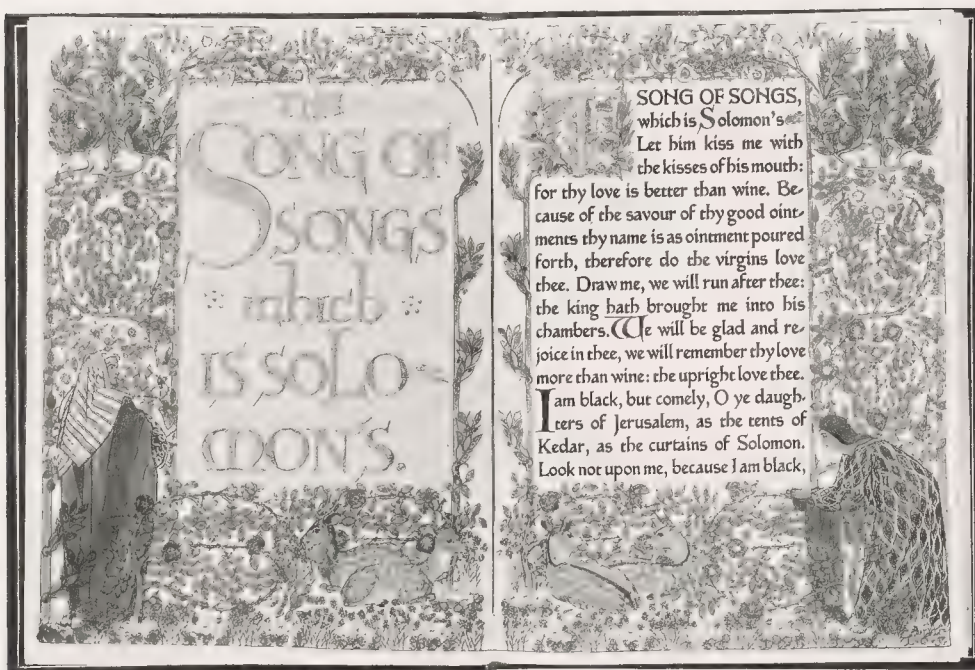 THE
SONG OF
SONGS
which
IS SOLO
MON'S.
SONG OF SONGS,
which is Solomon's
Let him kiss me with
the kisses of his mouth:
for thy love is better than wine. Be-
cause of the savour of thy good oint-
ments thy name is as ointment poured
forth, therefore do the virgins love
thee. Draw me, we will run after thee:
the king hath brought me into his
chambers. We will be glad and re-
joice in thee, we will remember thy love
more than wine: the upright love thee.
I am black, but comely, O ye daugh-
ters of Jerusalem, as the tents of
Kedar, as the curtains of Solomon.
Look not upon me, because I am black,